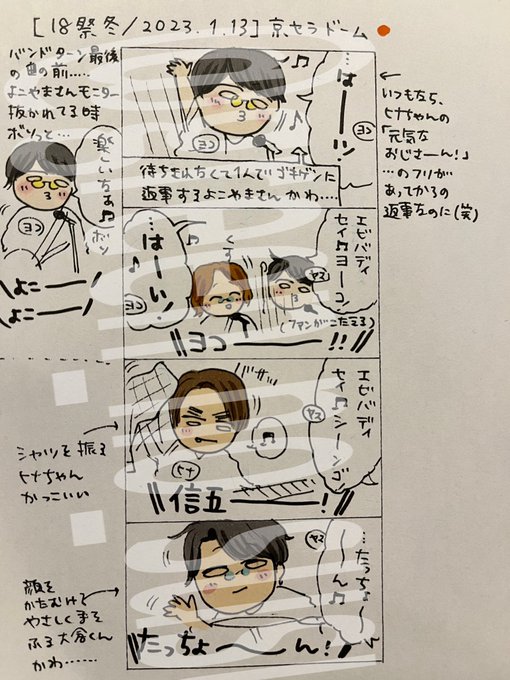 [18祭冬/2023.1.13] 京セラドーム
バンドターン最後
の曲の前.....
よこやまさんモニター
抜かれてる時
ボソっと...
楽しいなあ♫
ボソ
ヨコ
\よこーーー/
\よこーーー/
...はーーーッ!
ヨコ
待ちきれなくて1人でゴキゲンに
返事するよこやまさん かわ....
いつもなら、
ヒナちゃんの
「元気な
おじさーん!」
...のフリが
あってからの
返事なのに(笑)
エビバディ
セイ♫ヨーコ♪
ヤス
...はーーい!
ヨコ
くすっ
(ファンがこたえる)
ヨコーーー!!
エビバディ
セイ♫シーンゴ
ヤス
ヒナ
信五ーーー!
シャツを振る
ヒナちゃん
かっこいい
...たっちょーーん♫
ヤス
たっちょーーーん!
顔を
かたむけて
やさしく手を
ふる大倉くん
かわ......